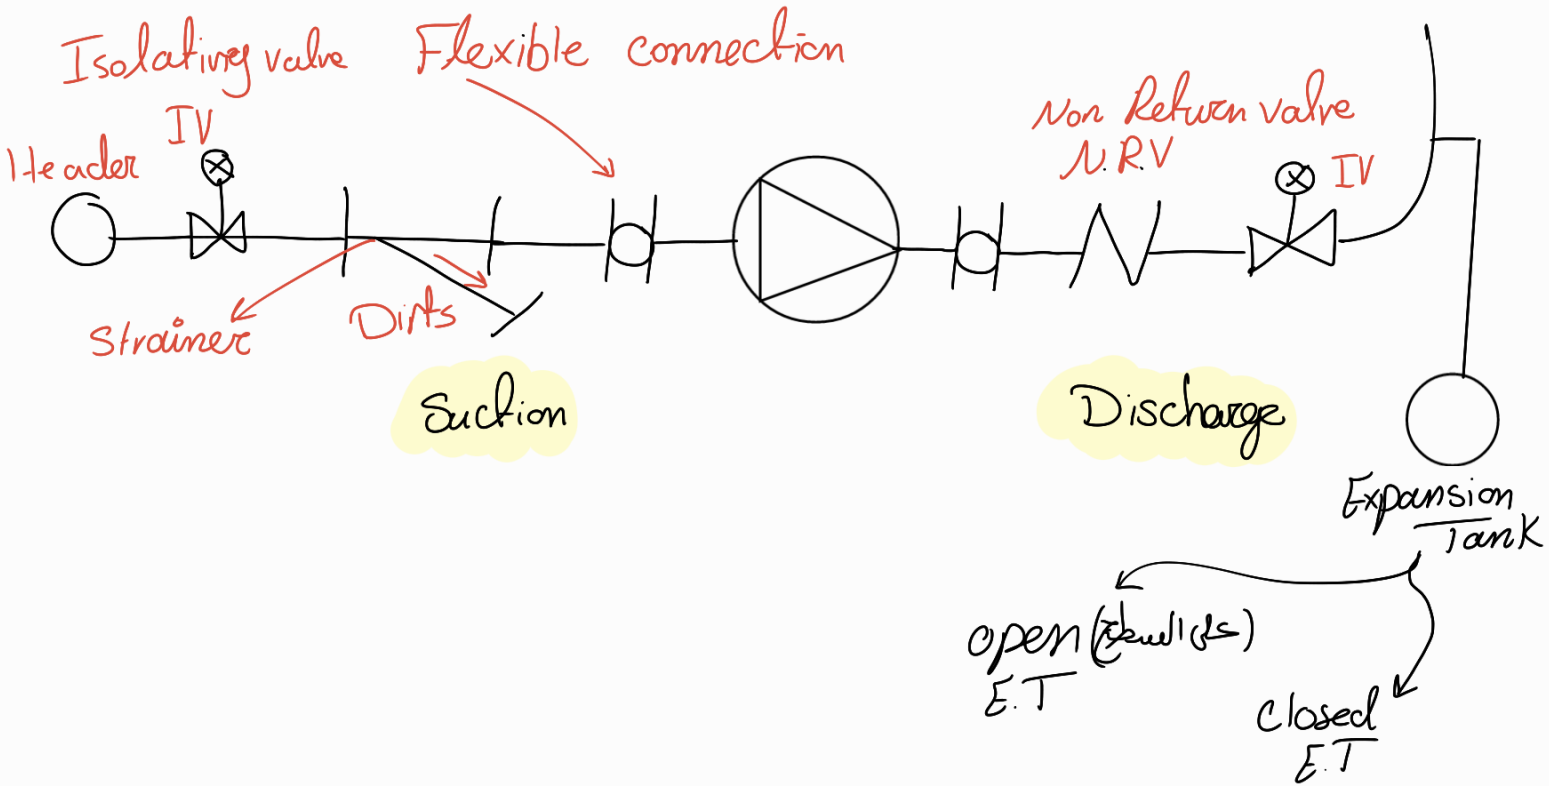 Isolating valve
Flexible connection
IV
Header
Non Return valve
N.R.V
IV
Strainer
Dirts
Suction
Discharge
Expansion
Tank
open
E.T
Closed
E.T